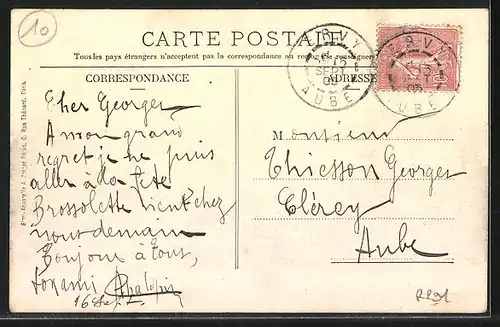 10
CARTE POSTALE
Tous les pays étrangers n'acceptent pas la correspondance au recto (se renseigner
CORRESPONDANCE
ADRESSE
ERVY
SEPT
AUBE
ERVY
AUBE
10
Cher Georges
A mon grand
regret je ne puis
aller à la fête
Brossolette vient chez
nous demain
Bonjour à tous,
ton ami
16 Sept
Monsieur
Thiesson Georges
Clérey
Aube